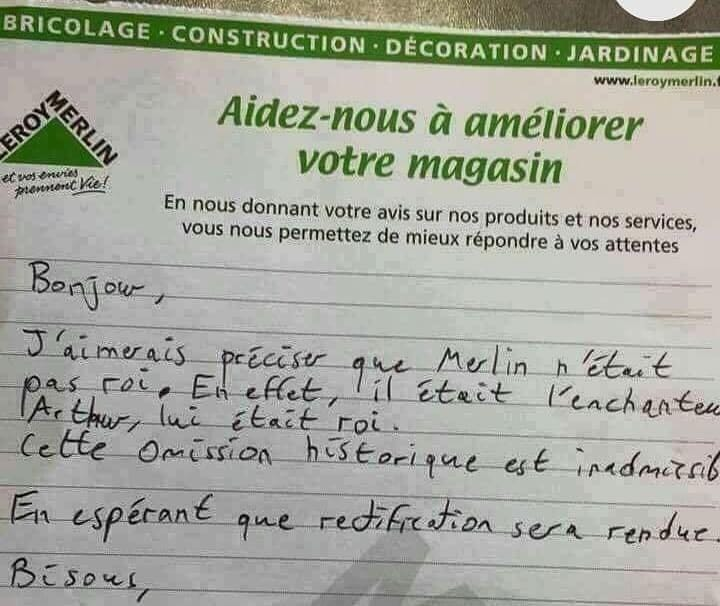 BRICOLAGE · CONSTRUCTION · DÉCORATION · JARDINAGE
www.leroymerlin.f
LEROY MERLIN
et vos envies
prennent Vie!
Aidez-nous à améliorer
votre magasin
En nous donnant votre avis sur nos produits et nos services,
vous nous permettez de mieux répondre à vos attentes
Bonjour,
J'aimerais préciser que Merlin n'était
pas roi. En effet, il était l'enchanteu
Arthur, lui était roi.
Cette omission historique est inadmissib
En espérant que rectification sera rendue.
Bisous,